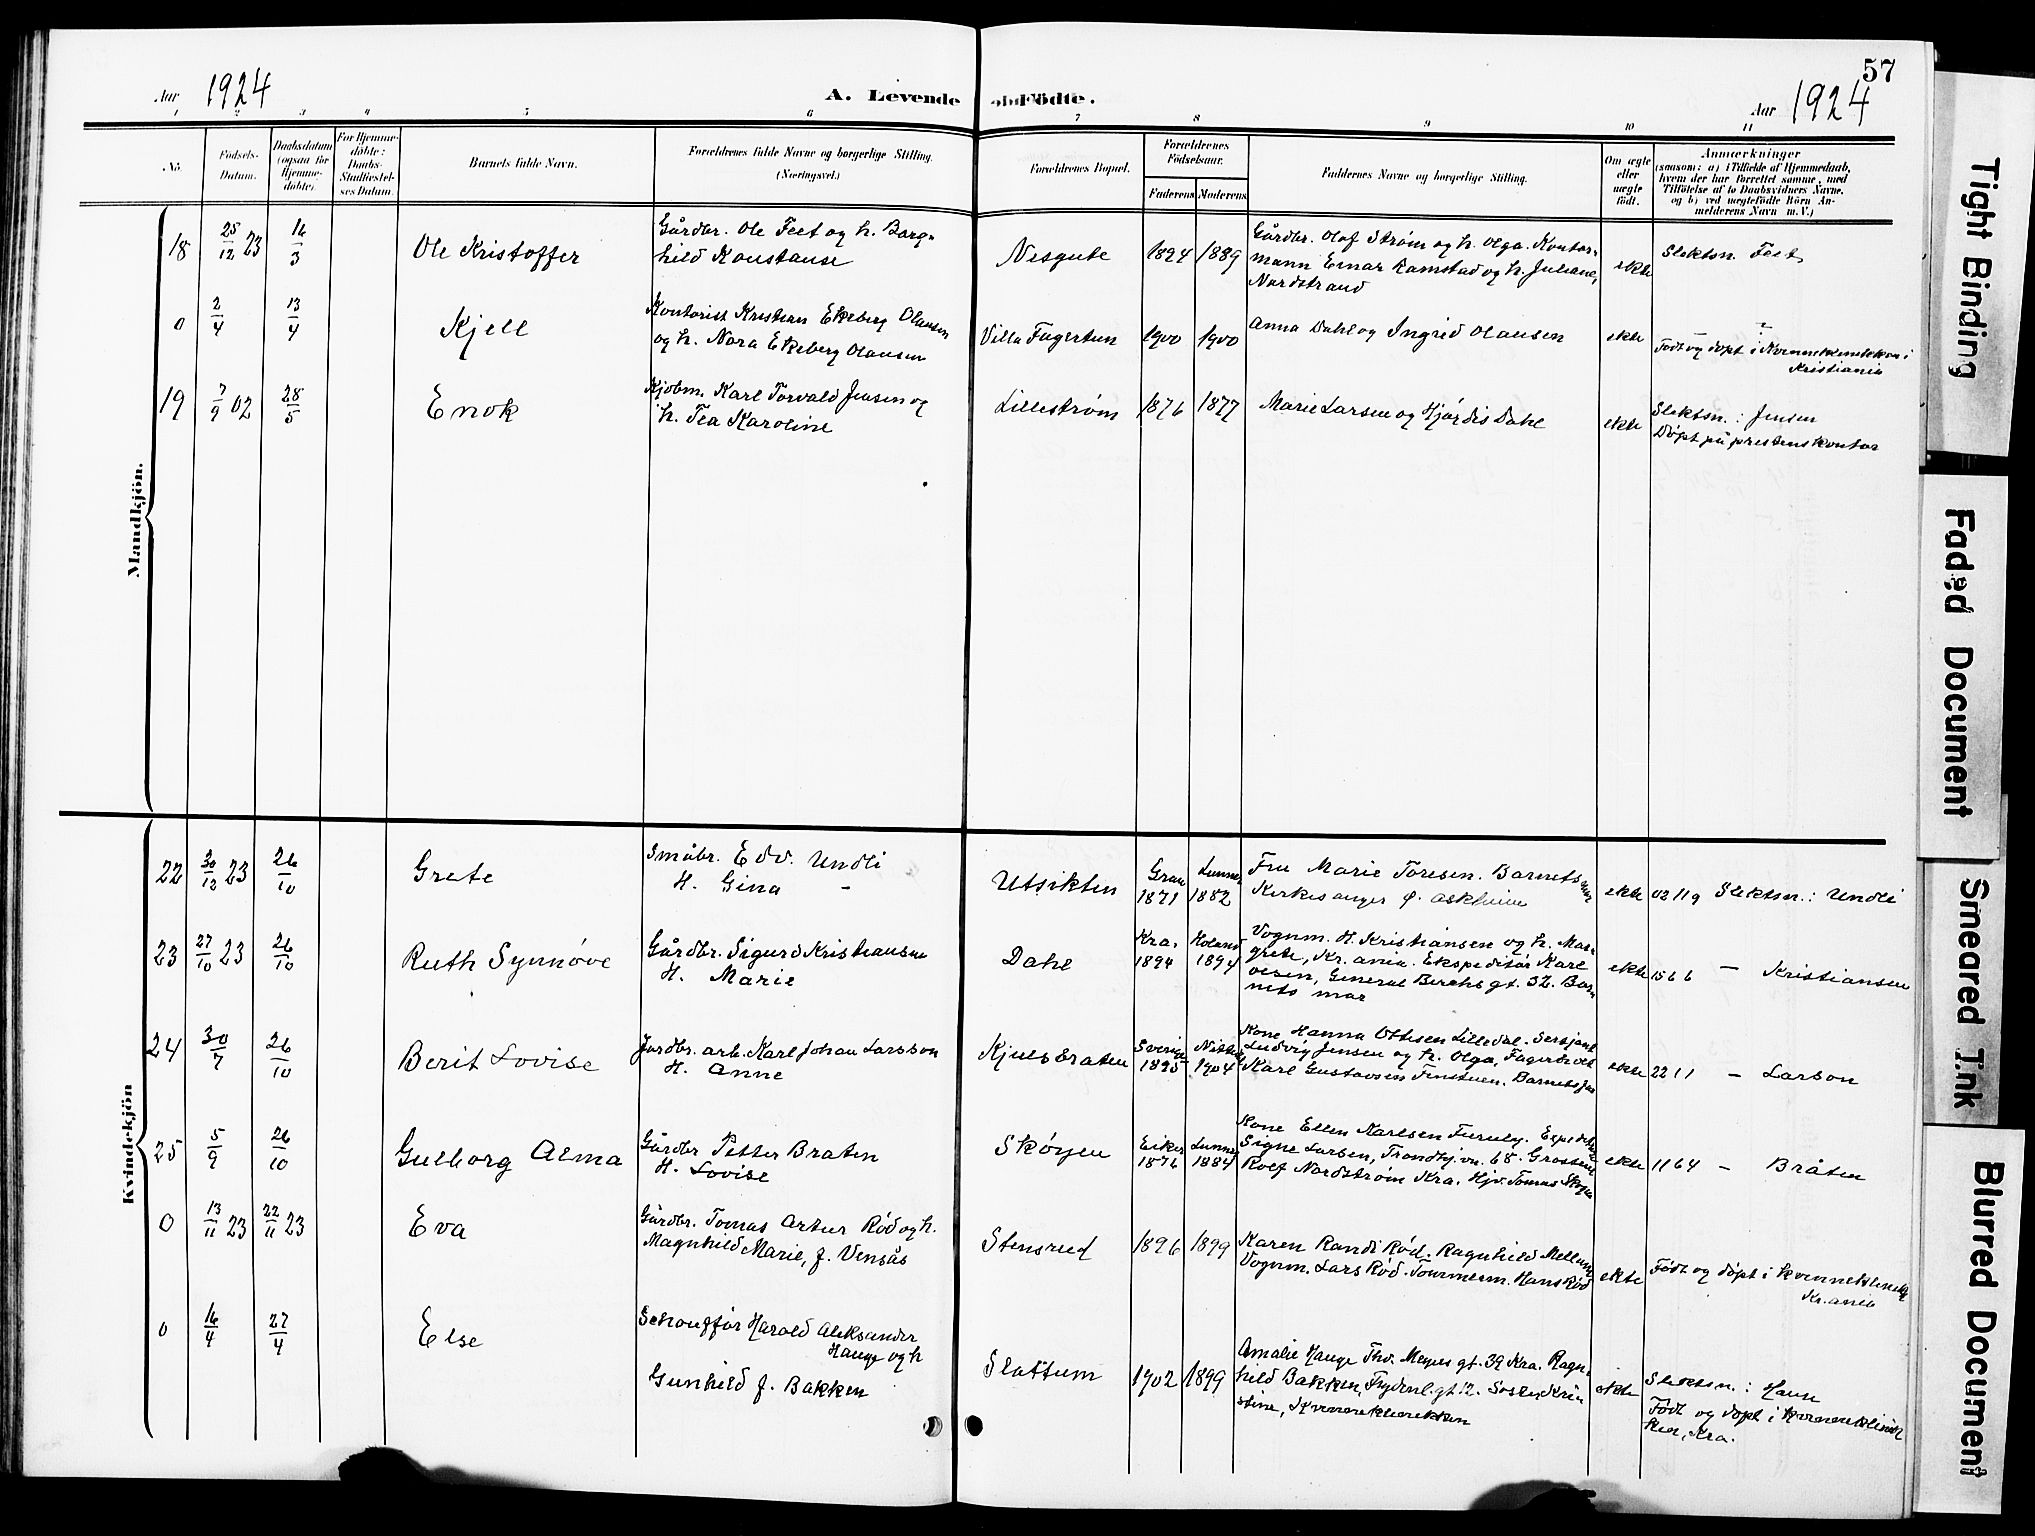 57
Aar 1924 A. Levende Födte. Aar 1924
1 2 3 4 5 6 7 8 9 10 11
No.
Födsels-
Datum.
Daabsdatum
(ogsaa for
Hjemme-
döbte)
For Hjemme-
döbte:
Daabs-
Stadfæstel-
ses Datum.
Barnets fulde Navn.
Forældrenes fulde Navne og borgerlige Stilling.
(Næringsvei.)
Forældrenes Bopæl.
Forældrenes
Födselsaar.
Faderens Moderens
Faddernes Navne og borgerlige Stilling.
Om ægte
eller
uægte
födt.
Anmærkninger
(saasom: a) i Tilfælde af Hjemmedaab,
hvem der har forrettet samme, med
Tilföielse af to Daabsvidners Navne,
og b) ved uægtefödte Börn An-
melderens Navn m. V.)
Mandkjön.
18
25/12 23
16/3
Ole Kristoffer
Gårdbr. Ole Feet og h. Borg-
hild Konstanse
Nesgute
1894 1889
Gårdbr. Olaf Strøm og h. Olga. Kontor-
mann Einar Ramstad og h. Juliane,
Nordstrand
ekte
Slektsn. Feet
0
2/4
13/4
Kjell
Kontorist Kristian Ekeberg Olausen
og h. Nora Ekeberg Olausen
Villa Fagertun
1900 1900
Anna Dahl og Ingrid Olausen
ekte
Født og døpt i Kvinneklinikken i
Kristiania
19
7/9 02
28/5
Enok
Kjøbm. Karl Torvald Jensen og
h. Tea Karoline
Lillestrøm
1876 1877
Marie Larsen og Hjørdis Dahl
ekte
Slektsn.: Jensen
Døpt på prestens kontor
Kvindekjön
22
30/12 23
26/10
Grete
Småbr. Edv. Undli
H. Gina -
Utsikten
Gran
1871
Lunner
1882
Fru Marie Toresen. Barnets mor
Kirkesanger Askheim
ekte
02119 Slektsn.: Undli
23
27/10 23
26/10
Ruth Synnøve
Gårdbr. Sigurd Kristiansen
H. Marie
Dahl
Kra.
1894
Høland
1894
Vognm. H. Kristiansen og h. Mar-
grete, Kr.ania. Ekspeditør Karl
Olsen, General Birchs gt. 32. Bar-
nets mor
ekte
1566 - Kristiansen
24
30/7
26/10
Berit Lovise
Jordbr. arb. Karl Johan Larsson
H. Anne
Kjulsbraten
Sverige
1895
1904
Kone Hanna Ottesen Lilledal. Sersjant
Ludvig Jensen og h. Olga, Fagerholt
Karl Gustavsen Finstuen. Barnets far
ekte
2211 - Larson
25
5/9
26/10
Gulborg Alma
Gårdbr Petter Braten
H. Lovise
Skøyen
Eiker
1876
Lunner
1884
Kone Ellen Karlsen Furuly.
Signe Larsen, Trondhj.vn. 68. Grosserer
Rolf Nordstrøm Kra. Hjv. Tomas Skøyen
ekte
1164 - Bråten
0
13/11 23
22/11 23
Eva
Gårdbr. Tomas Artur Rød og h.
Magnhild Marie, f. Vensås
Stensrud
1896 1899
Karen Randi Rød. Ragnhild Mellum
Vognm. Lars Rød. Tourmerm. Hans Rød
ekte
Født og døpt i kvinneklinikk
Kr.ania
0
16/4
27/4
Else
Schouffør Harald Aleksander
Hauge og h
Gunhild f. Bakken
Slattum
1902 1899
Amalie Hauge Thv. Meyers gt. 39 Kra. Ragn-
hild Bakken, Frydenl.gt. 12. Søster Kris-
stine, Kvinneklinikken
ekte
Slektsn.: Haug
Født og døpt i kvinneklinik
ken, Kra.
Tight Binding
Faded Document
Smeared Ink
Blurred Document